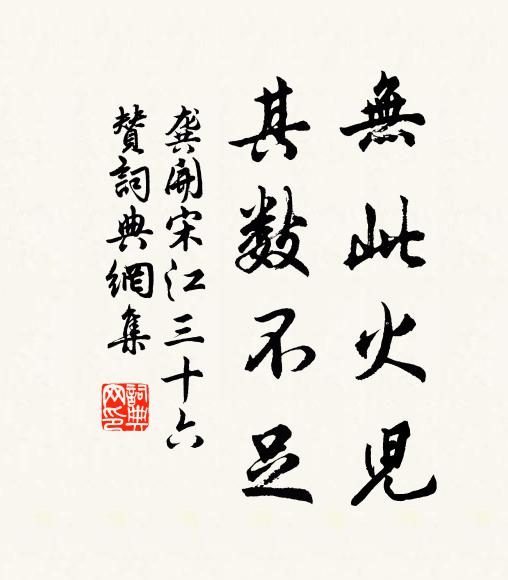 無此火兒
其数不足
龔開宋江三十六
贊詞典網集
詞典網印